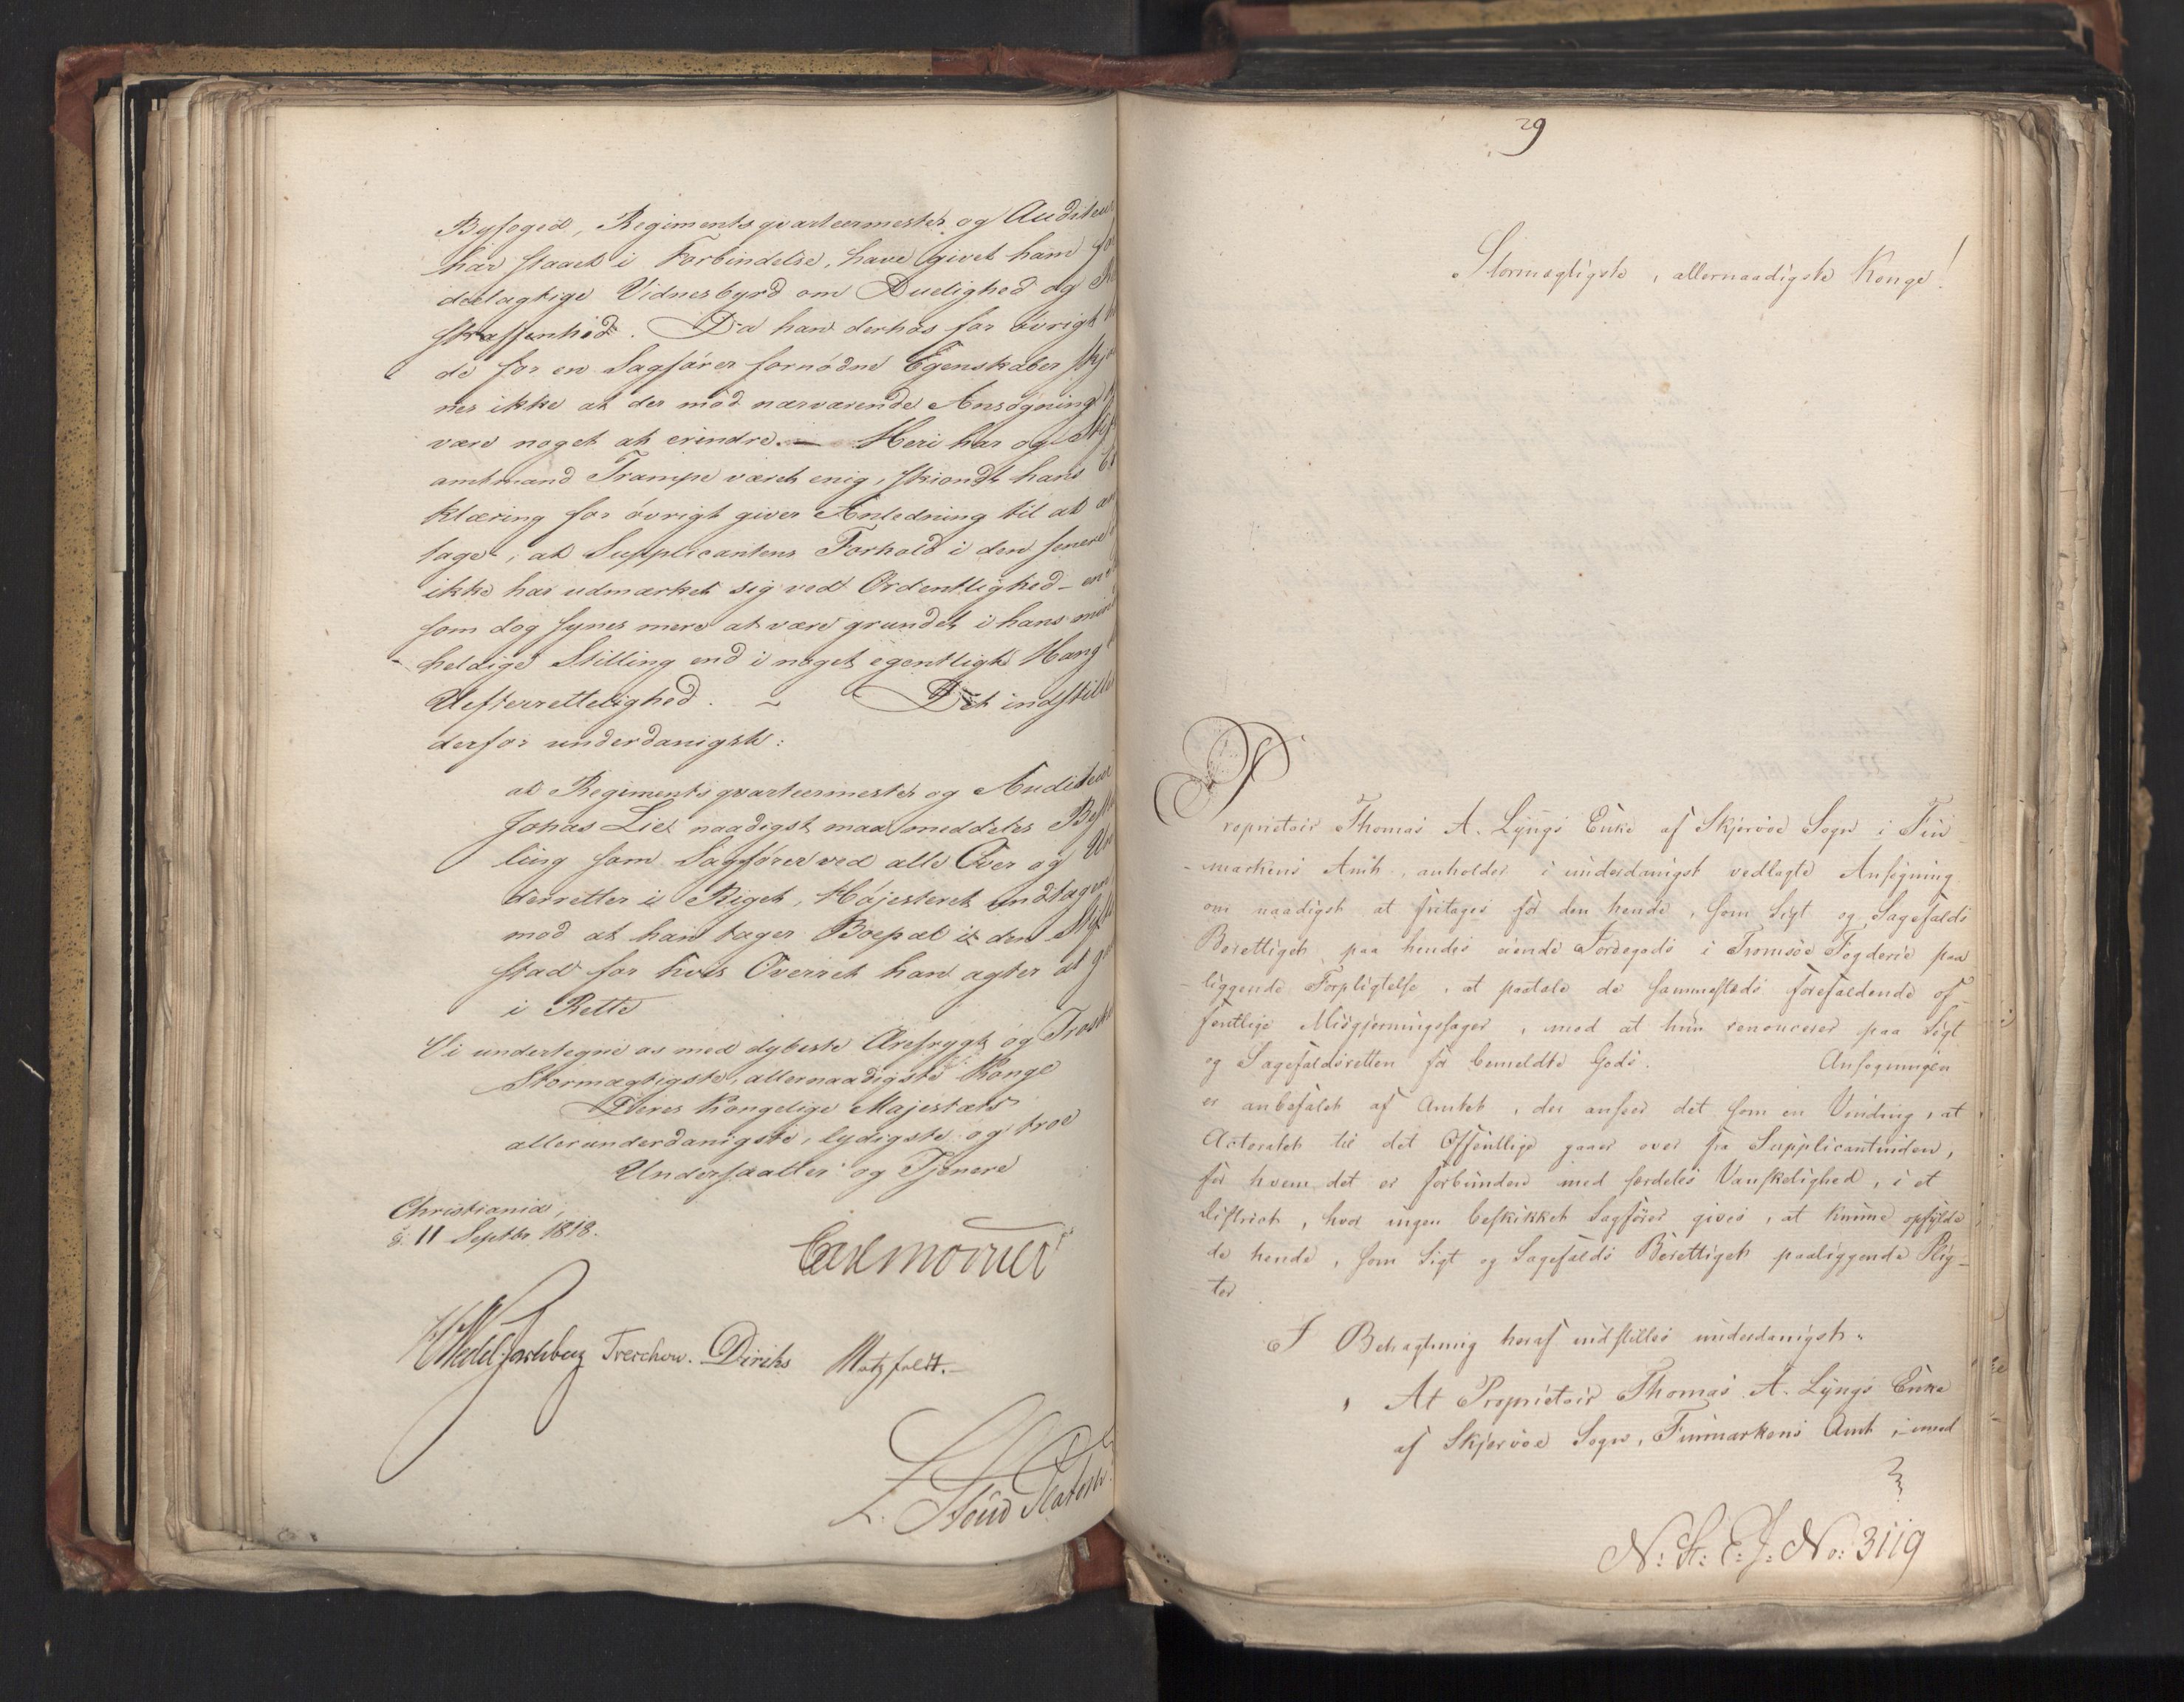 Byfoged, Regimentsqvarteermester og Auditeur
har staaet i Forbindelse, have givet ham for
deelagtige Vidnesbyrd om Duelighed og
skaffenhed. Da han derhos for övrigt
de for en Sagförer fornödne Egenskaber
nes ikke at der mod nærværende Ansögning
være noget at erindre. — Heri har og Stifts
amtmand Trampe været enig, skiöndt hans Er
klæring for övrigt giver Anledning til at an
tage, at Supplicantens Forhold i den senere
ikke har udmærket sig ved Ordentlighed - en
som dog synes mere at være grundet i hans mind
heldige Stilling end i noget egentligt Hang
Uefterrettelighed. ~ Det indstilles
derfor underdanigst:
at Regimentsqvarteermester og Auditeur
Johas Lie naadigst maa meddeles Bestal
ling som Sagförer ved alle Over og Un
derretter i Riget, Höjesteret undtagen
mod at han tager Boepæl i den Stifts
stad for hvis Overret han agter at gaa
i Rette
Vi undertegne os med dybeste Ærefrygt og Troskab
Stormægtigste, allernaadigste Konge
Deres Kongelige Majestæts
allerunderdanigste, lydigste og troe
Undersaatter og Tjenere
Christiania,
d: 11 Septbr 1818.
Carl Mörner
HWedel Jarlsberg Treschow. Diriks Motzfeldt.
L. Stoud Platou
29
Stormægtigste, allernaadigste Konge!
Proprietair Thomas A. Lyngs Enke af Skjervöe Sogn i Fin
-markens Amt, anholder i underdanigst vedlagte Ansögning
om naadigst at fritages for den hende, som Sigt og Sagefalds
Berettiget, paa hendes eiende Jordegods i Tromsöe Fogderie paa
-liggende Forpligtelse, at paatale de sammesteds forefaldende of-
fentlige Misgjerningssager, mod at hun renoncerer paa Sigt
og Sagefaldsretten for bemeldte Gods. Ansögningen
er anbefalet af Amtet, der anseer det som en Vinding, at
Actoratet til det Offentlige gaaer over fra Supplicantinden,
for hvem det er forbunden med særdeles Vanskelighed, i et
District, hvor ingen beskikket Sagförer gives, at kunne opfylde
de hende, som Sigt og Sagefalds Berettiget paaliggende Plig-
ter
I Betragtning heraf indstilles underdanigst:
At Proprietair Thomas A. Lyngs Enke
af Skjervöe Sogn, Finmarkens Amt, imod
N: St: E: J: No: 3119